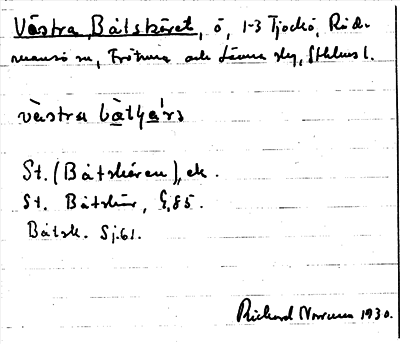 Västra Båtskäret, ö, 1-3 Tjockö, Råd-
mansö sn, Frötuna och Länna skg, Sthlms l.
västra bå̀tʃä́rə
St. (Båtskären), ek.
St. Båtskär, G.85.
Båtsk. Sj.61.
Richard Norman 1930.